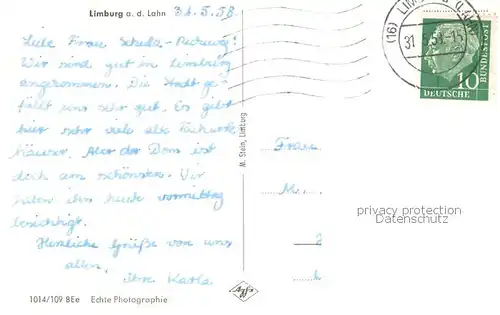 Limburg a. d. Lahn
31.5.58
Liebe Frau
Wir sind gut in Limburg
angekommen. Die Stadt ge-
fällt uns sehr gut. Es gibt
hier sehr viele alte Fachwerk
häuser. Aber der Dom ist
doch am schönsten. Wir
haben ihn heute vormittag
besichtigt.
Herzliche Grüße von uns
allen.
Ihre Karla
1014/109 8Ee Echte Photographie
M. Stein, Limburg
Agfa
(16) LIMBURG
31
10
DEUTSCHE
BUNDESPOST
Frau
M.
privacy protection
Datenschutz